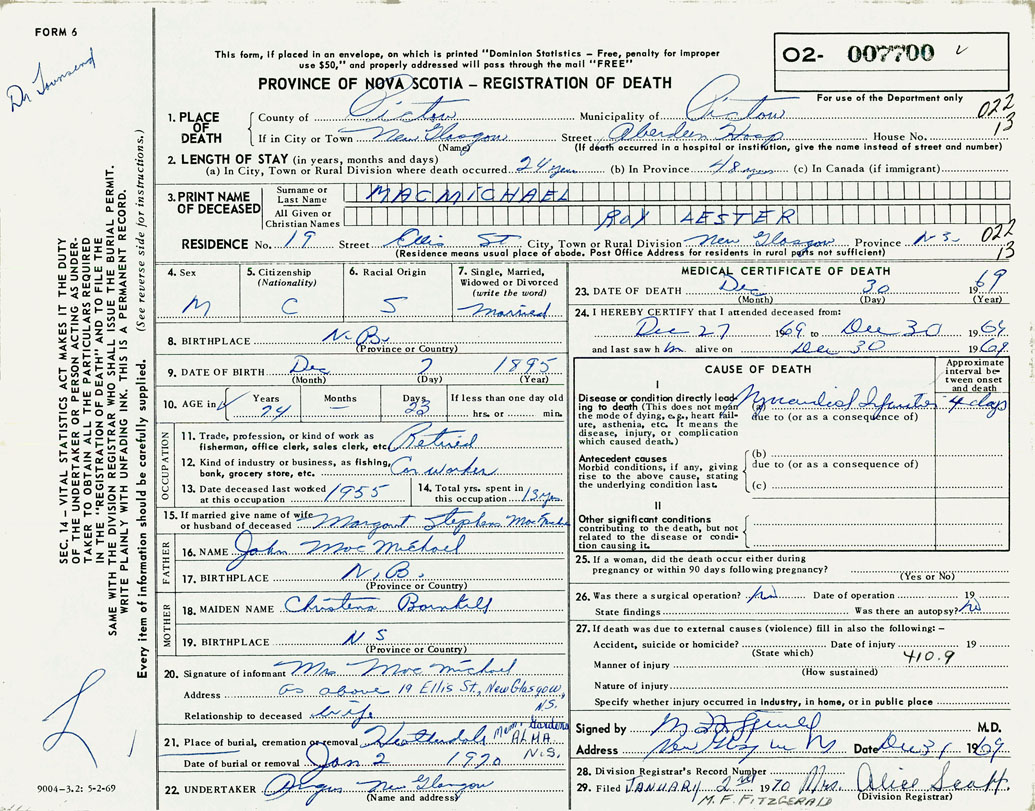 FORM 6
Dr Townsend
This form, if placed in an envelope, on which is printed "Dominion Statistics – Free, penalty for improper
use $50," and properly addressed will pass through the mail "FREE"
PROVINCE OF NOVA SCOTIA – REGISTRATION OF DEATH
O2- 007700
For use of the Department only
022
13
1. PLACE OF DEATH
County of Pictou Municipality of Pictou
If in City or Town New Glasgow Street Aberdeen Hosp House No.
(Name) (If death occurred in a hospital or institution, give the name instead of street and number)
2. LENGTH OF STAY (in years, months and days)
(a) In City, Town or Rural Division where death occurred 24 yrs (b) In Province 48 yrs (c) In Canada (if immigrant)
3. PRINT NAME OF DECEASED
Surname or Last Name MACMICHAEL
All Given or Christian Names ROY LESTER
RESIDENCE No. 19 Street Ellis St City, Town or Rural Division New Glasgow Province N.S. 022
13
(Residence means usual place of abode. Post Office Address for residents in rural parts not sufficient)
4. Sex M
5. Citizenship (Nationality) C
6. Racial Origin S
7. Single, Married, Widowed or Divorced (write the word) Married
8. BIRTHPLACE N.B.
(Province or Country)
9. DATE OF BIRTH Dec 7 1895
(Month) (Day) (Year)
10. AGE in Years 74 Months – Days 23 If less than one day old
hrs. or min.
OCCUPATION
11. Trade, profession, or kind of work as
fisherman, office clerk, sales clerk, etc. Retired
12. Kind of industry or business, as fishing,
bank, grocery store, etc. Car worker
13. Date deceased last worked at this occupation 1955
14. Total yrs. spent in this occupation 13 yrs.
15. If married give name of wife
or husband of deceased Margaret Stephens
FATHER
16. NAME John MacMichael
17. BIRTHPLACE N.B.
(Province or Country)
MOTHER
18. MAIDEN NAME Christena
19. BIRTHPLACE N S
(Province or Country)
20. Signature of informant Mrs MacMichael
Address as above 19 Ellis St., New Glasgow, N.S.
Relationship to deceased wife
21. Place of burial, cremation or removal Heatherdale Mem. Gardens ALMA N.S.
Date of burial or removal Jan. 2 1970
22. UNDERTAKER Angus New Glasgow
(Name and address)
MEDICAL CERTIFICATE OF DEATH
23. DATE OF DEATH Dec 30 1969
(Month) (Day) (Year)
24. I HEREBY CERTIFY that I attended deceased from:
Dec 27 1969 to Dec 30 1969
and last saw him alive on Dec 30 1969
CAUSE OF DEATH
Approximate interval between onset and death
I
Disease or condition directly leading to death (This does not mean the mode of dying, e.g., heart failure, asthenia, etc. It means the disease, injury, or complication which caused death.)
(a) Myocardial Infarction 4 days
due to (or as a consequence of)
Antecedent causes
Morbid conditions, if any, giving rise to the above cause, stating the underlying condition last.
(b)
due to (or as a consequence of)
(c)
II
Other significant conditions
contributing to the death, but not related to the disease or condition causing it.
25. If a woman, did the death occur either during
pregnancy or within 90 days following pregnancy?
(Yes or No)
26. Was there a surgical operation? No Date of operation 19
State findings Was there an autopsy? No
27. If death was due to external causes (violence) fill in also the following: –
Accident, suicide or homicide? Date of injury 19
(State which) 410.9
Manner of injury
(How sustained)
Nature of injury
Specify whether injury occurred in Industry, in home, or in public place
Signed by M.D.
Address New Glasgow N.S. Date Dec 31 1969
28. Division Registrar's Record Number
29. Filed JANUARY 2nd 1970 Mrs. Alice Scott
(Division Registrar)
M.F. FITZGERALD
SEC. 14 – VITAL STATISTICS ACT MAKES IT THE DUTY
OF THE UNDERTAKER OR PERSON ACTING AS UNDER-
TAKER TO OBTAIN ALL THE PARTICULARS REQUIRED
IN THE "REGISTRATION OF DEATH" AND TO FILE THE
SAME WITH THE DIVISION REGISTRAR WHO SHALL ISSUE THE BURIAL PERMIT.
WRITE PLAINLY WITH UNFADING INK. THIS IS A PERMANENT RECORD.
Every item of information should be carefully supplied. (See reverse side for instructions.)
9004–3.2: 5-2-69